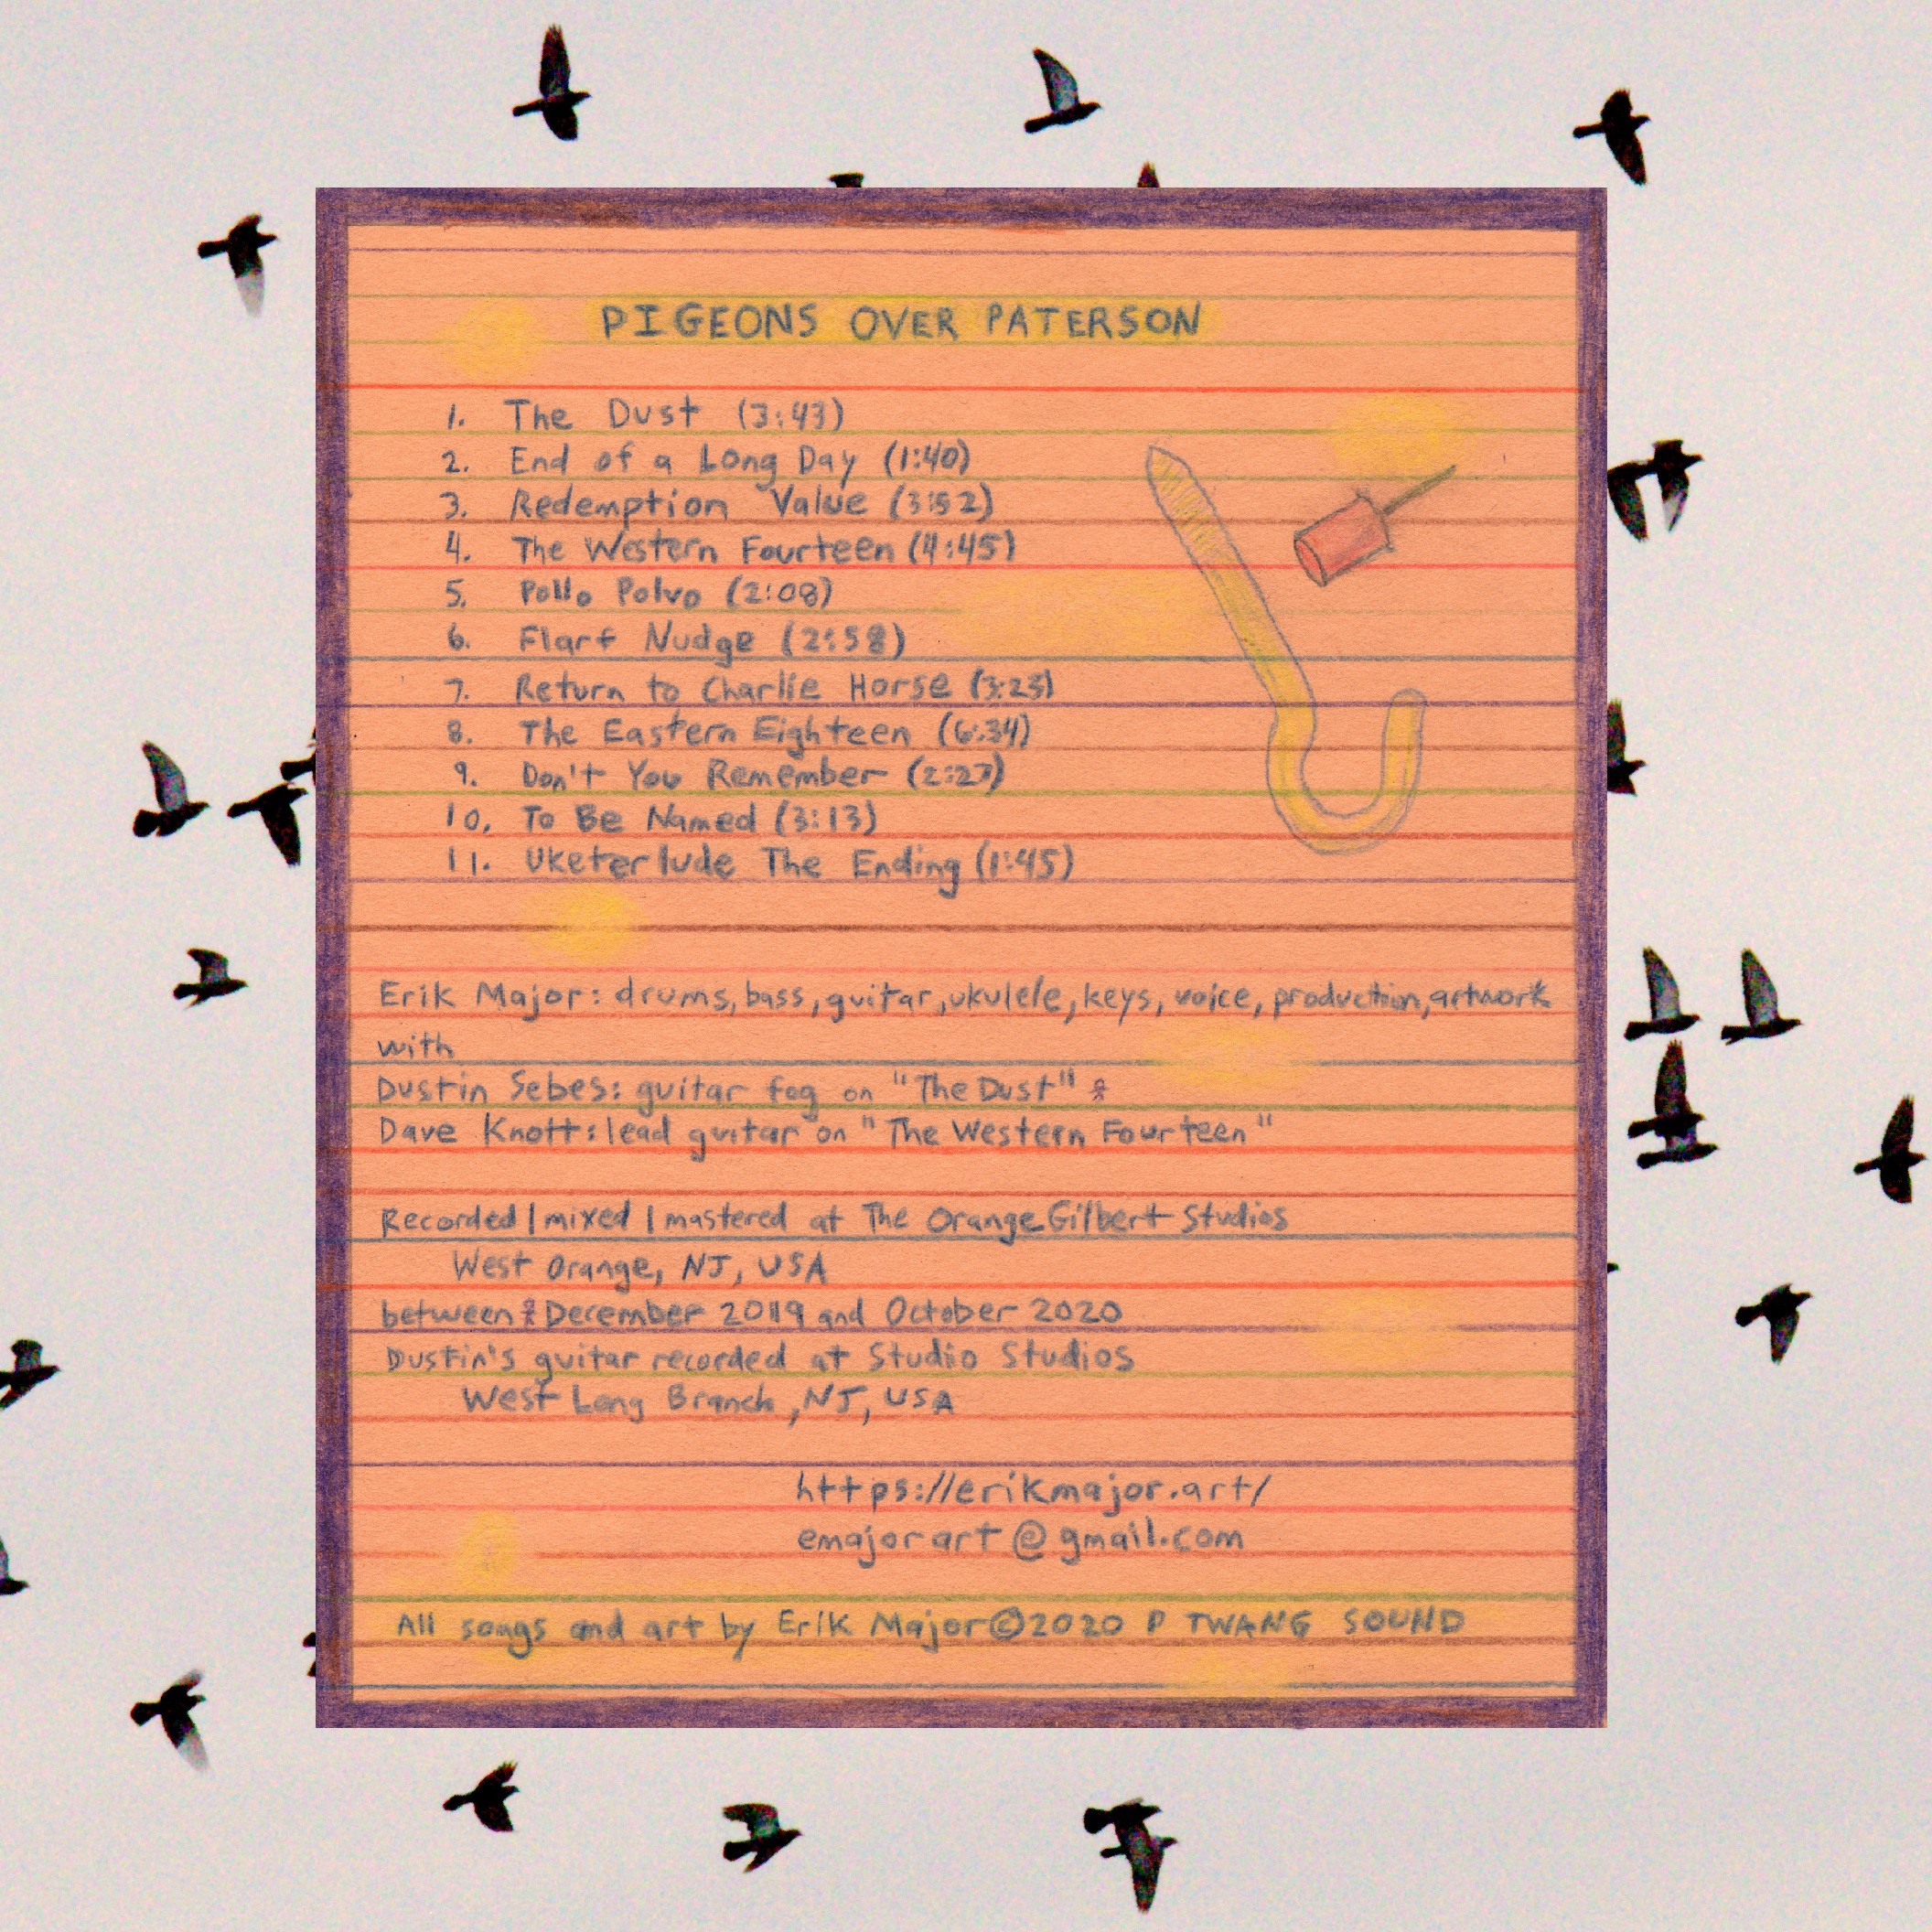 PIGEONS OVER PATERSON
1. The Dust (3:43)
2. End of a Long Day (1:40)
3. Redemption Value (3:52)
4. The Western Fourteen (4:45)
5. Pollo Polvo (2:08)
6. Flarf Nudge (2:58)
7. Return to Charlie Horse (3:23)
8. The Eastern Eighteen (6:34)
9. Don't You Remember (2:27)
10. To Be Named (3:13)
11. Uketerlude The Ending (1:45)
Erik Major: drums, bass, guitar, ukulele, keys, voice, production, artwork
with
Dustin Sebes: guitar fog on "The Dust"
Dave Knott: lead guitar on "The Western Fourteen"
Recorded | mixed | mastered at The Orange Gilbert Studios
West Orange, NJ, USA
between December 2019 and October 2020
Dustin's guitar recorded at Studio Studios
West Long Branch, NJ, USA
https://erikmajor.art/
emajorart@gmail.com
All songs and art by Erik Major ©2020 P TWANG SOUND